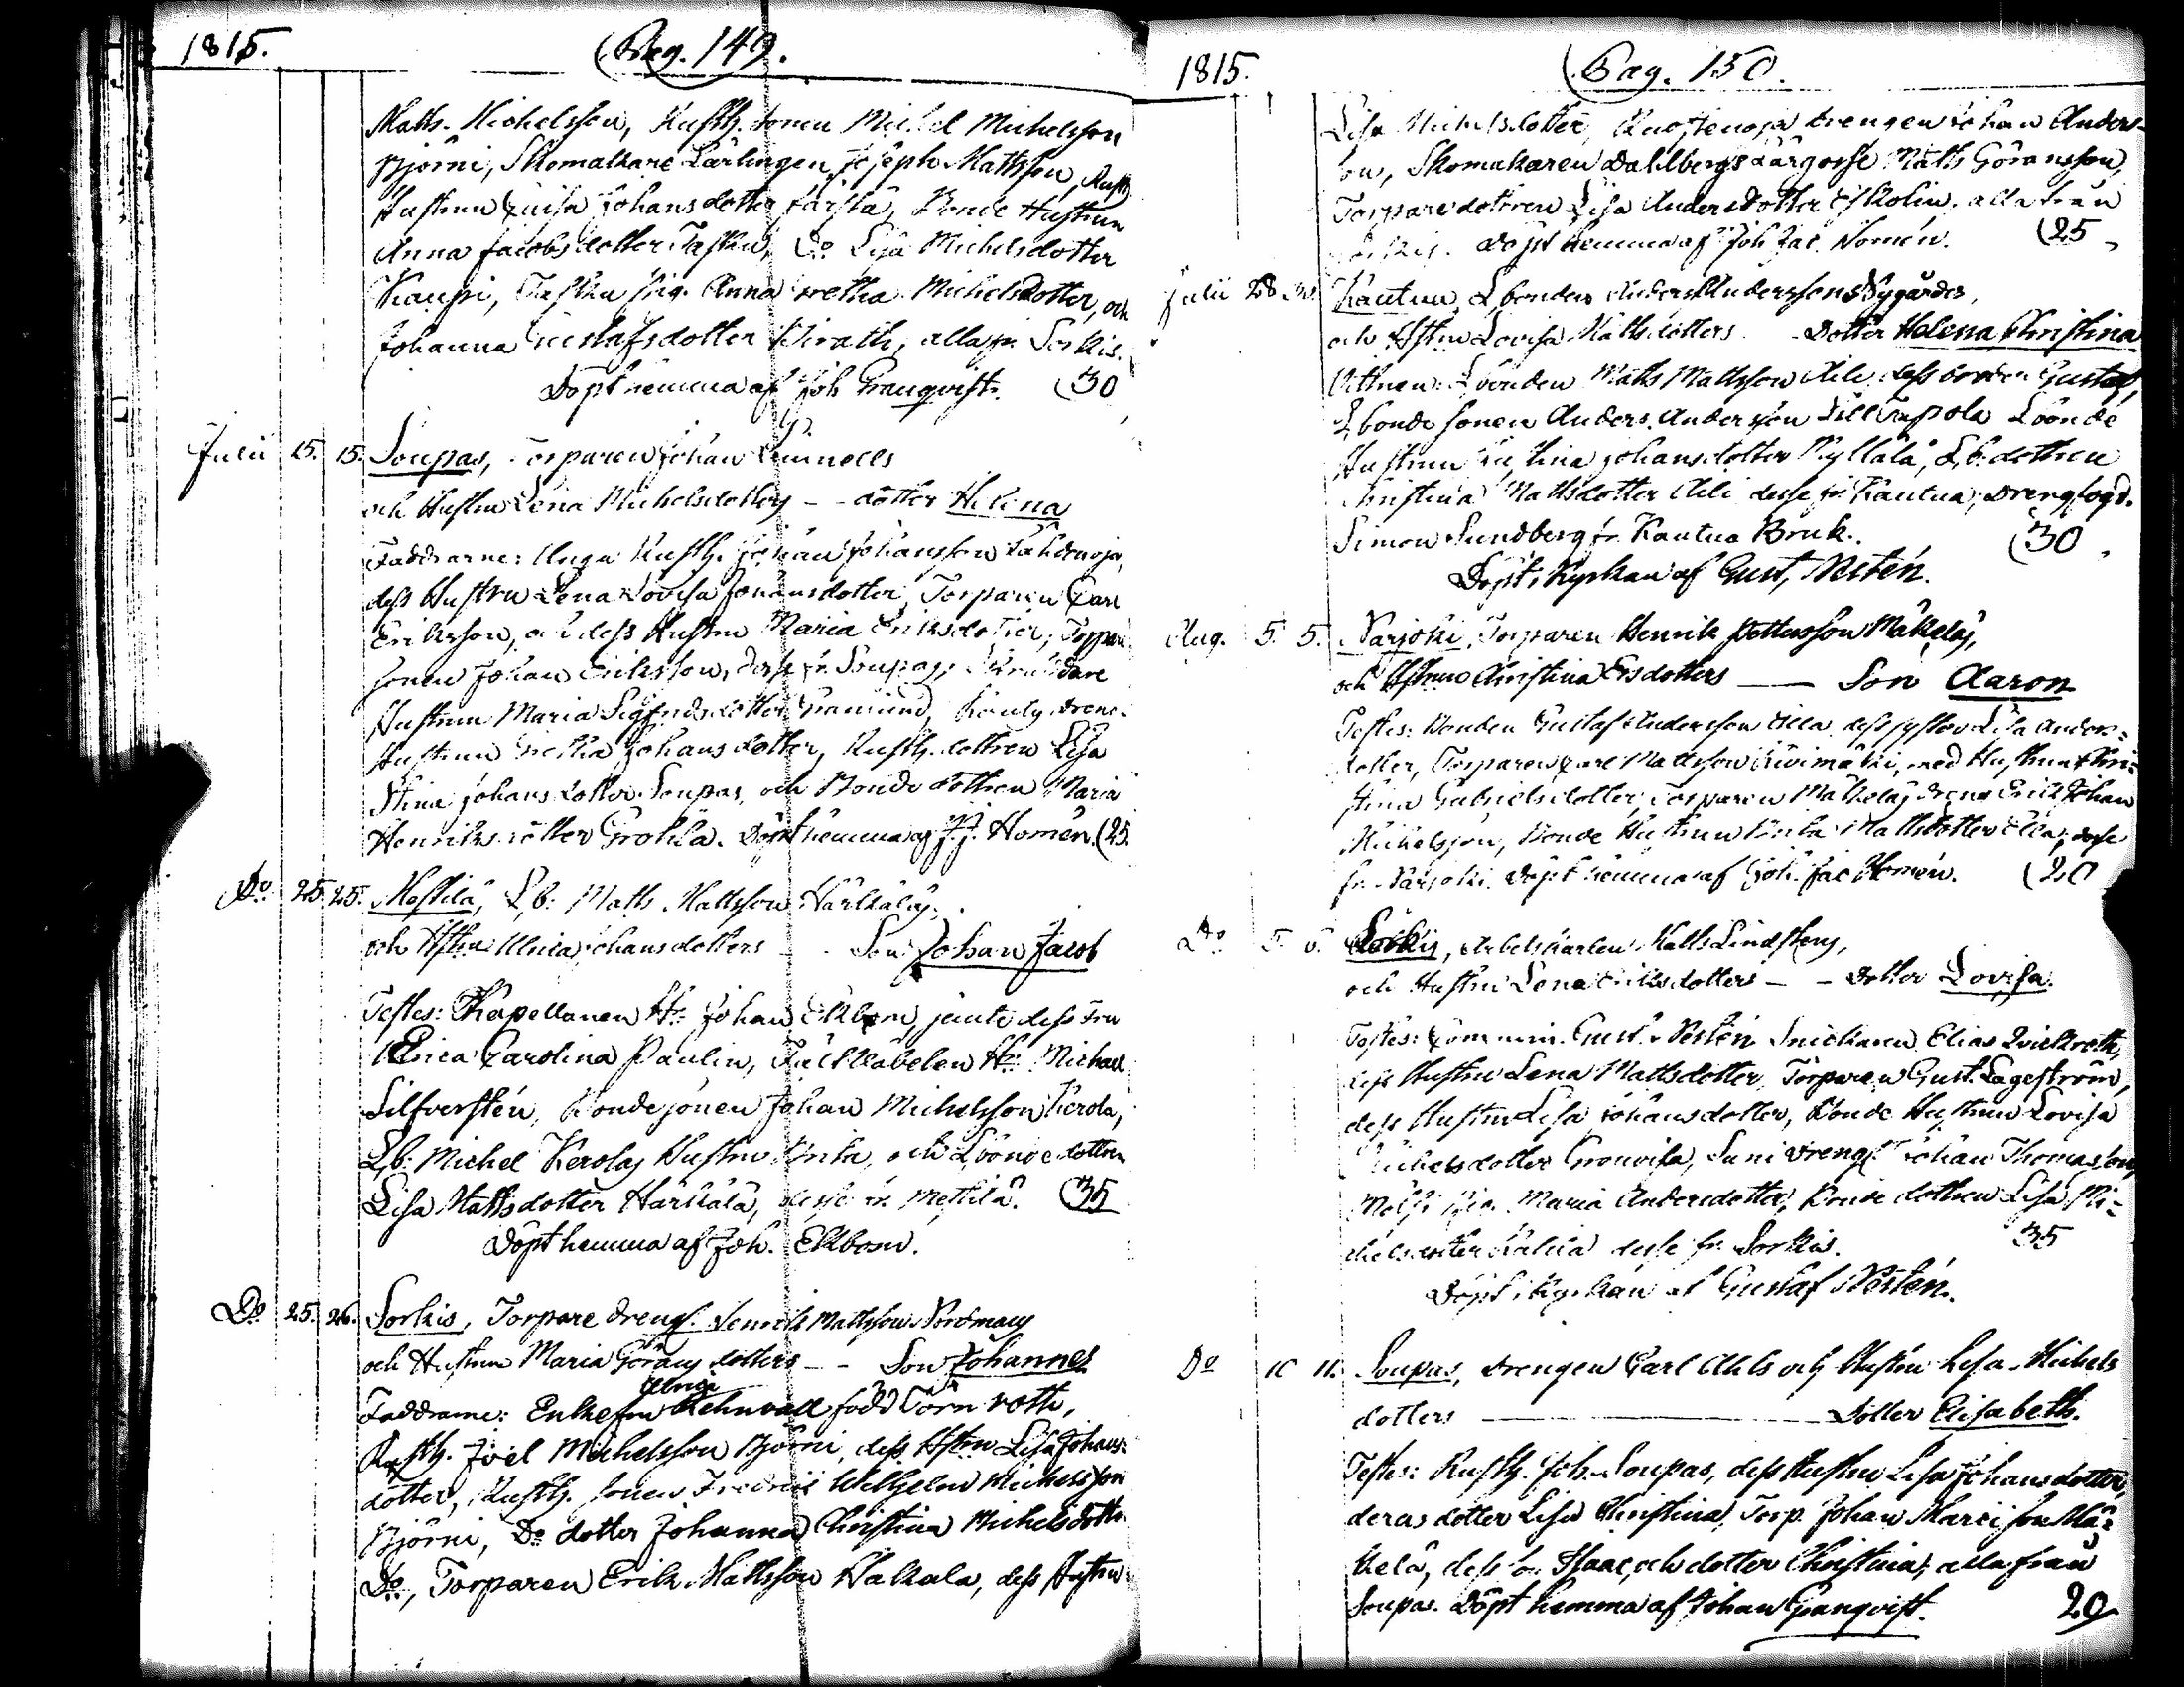 1815.
Pag. 149.
Matts. Michelsson, Rusth. sonen Michel Michelsson
Björni, Skomakare Lärlingen Joseph Mattsson, Rusth
Hustrun Lovisa Johansdotter Färslä, Bonde Hustrun
Anna Jacobsdotter Tasku, Do Lisa Michelsdotter
Kaupi, Tasku Anna Michelsdotter, och
Johanna Gustafsdotter alla fr. Sorkis.
Döpt hemma af Joh Granqvist. (30
Julii 15. 15. Soupas, Torparen Johan
och Hustru Lena Michelsdotters - - dotter Helena
Faddrarne: Unga Rusth. Johan Johansson
dess Hustru Lena Lovisa Johansdotter, Torparen Carl
Eriksson, och dess Hustru Maria Eriksdotter, Torpare
sonen Johan Eriksson, desse fr. Soupas;
Hustrun Maria Sigfridsdotter
Hustrun Johansdotter, Rusth. dottren Lisa
Stina Johansdotter Soupas, och Bonde dottren Maria
Henriksdotter Grohla. Döpt hemma af J. J. Homén. (25.
Do 25. 25. Mestilä, Lb: Matts Mattsson Härkäläs,
och Hstru Ulrica Johansdotters - - Son Johan Jacob
Testes: Kapellanen Hr: Johan Ekbom, jemte dess Fru
Ulrica Carolina Paulin, Fältväbelen Hr: Michael
Silfverstén, Bondesonen Johan Michelsson Kerola,
Lb: Michel Kerolas Hustru Brita, och Lbonde dottren
Lisa Mattsdotter Härkälä, desse fr. Mestilä. (35
Döpt hemma af Joh. Ekbom.
Do 25. 26. Sorkis, Torpare dreng. Henrik Mattsson Nordmans
och Hustrun Maria Görans dotters - - Son Johannes
Ulrica
Faddrarne: Enkefru Rehnvall född Törnroth,
Rusth. Joel Michelsson Björni, dess Hstru Lisa Johans-
dotter, Rusth. sonen Fredric Wilhelm Michelsson
Björni, Do dotter Johanna Christina Michelsdotter
Do, Torparen Erik Mattsson Hakala, dess Hustru
1815.
Pag. 150.
Lisa Michelsdotter, drengen Johan Anders-
son, Skomakaren Dahlbergs Lärgosse Matts Göransson,
Torparedottren Lisa Andersdotter Eskolin. alla från
Sorkis. Döpt hemma af Joh Jac. Homén. (25
Julii 28. 30. Kautua, Lbonden Anders Anderssons Nygårds,
och Hstru Lovisa Mattsdotters - Dotter Helena Christina
Vittnen: Lbonden Matts Mattsson Äili, dess broder Gustaf,
Lbonde sonen Anders Andersson Lill Tapola Lbonde
Hustrun Justina Johansdotter Kyllälä, Lb. dottren
Christina Mattsdotter Äili desse fr. Kautua; Drengfogd.
Simon Sundberg fr. Kautua Bruk. (30
Döpt i Kyrkan af Gust, Nestén.
Aug. 5. 5. Narjoki, Torparen Henrik Pettersson Mäkeläs,
och Hstruns Christina Ersdotters —— Son Aaron
Testes: Bonden Gustaf Andersson Olla dess syster Lisa Anders-
dotter, Torparen Carl Mattsson Kivimäki, med Hustrun Chri-
stina Gabrielsdotter, Torparen Mäkeläs dreng Erik Johan
Michelsson, Bonde Hustrun Brita Mattsdotter Olla; desse
fr. Narjoki. Döpt hemma af Joh. Jac Homén. (20
Do 5. 6. Sorkis, Arbetskarlen Matts Lindstens,
och Hustru Lena Eriksdotters - - dotter Lovisa.
Testes: Comminm. Gust. Nestén Snickaren Elias Qvickroth,
dess Hustru Lena Mattsdotter, Torparen Gust. Lagström,
dess Hustru Lisa Johansdotter, Bonde Hustrun Lovisa
Michelsdotter Grouvila, Suni dreng. Johan Thomasson,
Maria Andersdotter, Bonde dottren Lisa Mi-
chelsdotter desse fr. Sorkis. 35
Döpt i Kyrkan af Gustaf Nestén.
Do 10 11. Soupas, drengen Carl Ahls och Hustru Lisa Michels
dotters —— Dotter Elisabeth.
Testes: Rusth. Joh. Soupas, dess Hustru Lisa Johansdotter,
deras dotter Lisa Christina, Torp. Johan Marcisson Mä-
kelä, dess son Isaac, och dotter Christina; alla från
Soupas. Döpt hemma af Johan Granqvist. 20